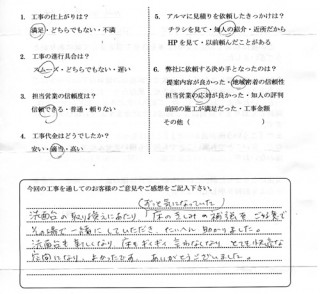 1. 工事の仕上がりは？
満足・どちらでもない・不満
2. 工事の進行具合は？
スムーズ・どちらでもない・遅い
3. 担当営業の信頼度は？
信頼できる・普通・頼りない
4. 工事代金はどうでしたか？
安い・適当・高い
5. アルマに見積りを依頼したきっかけは？
チラシを見て・知人の紹介・近所だから
HPを見て・以前頼んだことがある
6. 弊社に依頼する決め手となったのは？
提案内容が良かった・地域密着の信頼性
担当営業の応対が良かった・知人の評判
前回の施工が満足だった・工事金額
その他（　　　　）
今回の工事を通してのお客様のご意見やご感想をご記入下さい。
(ずっと気になっていた)
洗面台の取り換えにあたり「床のきしみの補強を
その場で一緒にしていただき、たいへん助かりました。
洗面台も新しくなり 床もギシギシ言わなくなり とても快適な
空間になり、よかったです。ありがとうございました。